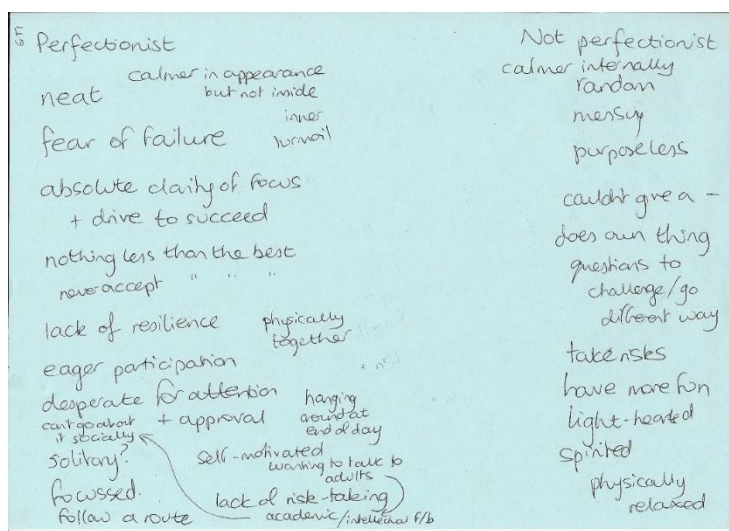 Perfectionist
calmer in appearance
but not inside
neat
inner
turmoil
fear of failure
absolute clarity of focus
+ drive to succeed
nothing less than the best
never accept " " "
lack of resilience
physically
together
eager participation
desperate for attention
+ approval
hanging
around at
end of day
can't go about
it socially
solitary?
self-motivated
wanting to talk to
adults
focussed.
lack of risk-taking
follow a route
academic/intellectual f/b
Not perfectionist
calmer internally
random
messy
purposeless
couldn't give a -
does own thing
questions to
challenge/go
different way
take risks
have more fun
light-hearted
spirited
physically
relaxed